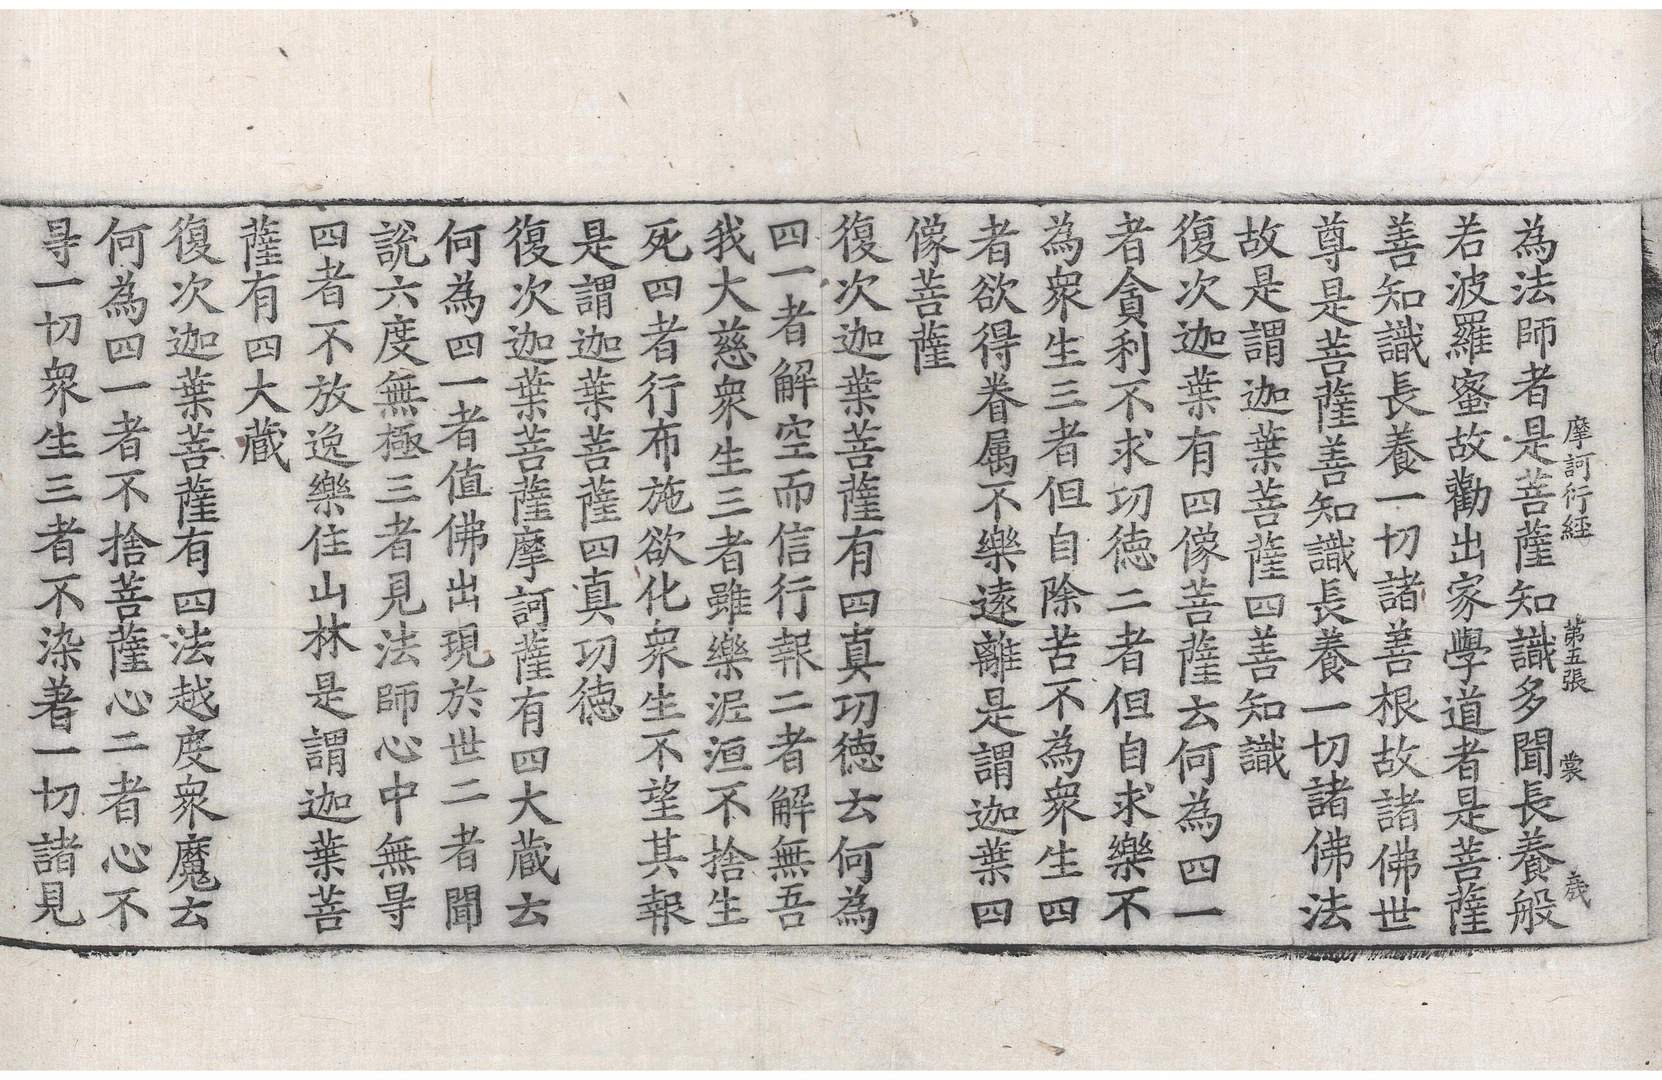 摩訶衍經　第五張　裳
為法師者是菩薩知識多聞長養般
若波羅蜜故勸出家學道者是菩薩
善知識長養一切諸善根故諸佛世
尊是菩薩善知識長養一切諸佛法
故是謂迦葉菩薩四善知識
復次迦葉有四像菩薩云何為四一
者貪利不求功徳二者但自求樂不
為衆生三者但自除苦不為衆生四
者欲得眷属不樂遠離是謂迦葉四
像菩薩
復次迦葉菩薩有四真功徳云何為
四一者解空而信行報二者解無吾
我大慈衆生三者雖樂泥洹不捨生
死四者行布施欲化衆生不望其報
是謂迦葉菩薩四真功徳
復次迦葉菩薩摩訶薩有四大蔵云
何為四一者值佛出現於世二者聞
說六度無極三者見法師心中無㝵
四者不放逸樂住山林是謂迦葉菩
薩有四大蔵
復次迦葉菩薩有四法越度衆魔云
何為四一者不捨菩薩心二者心不
㝵一切衆生三者不染著一切諸見